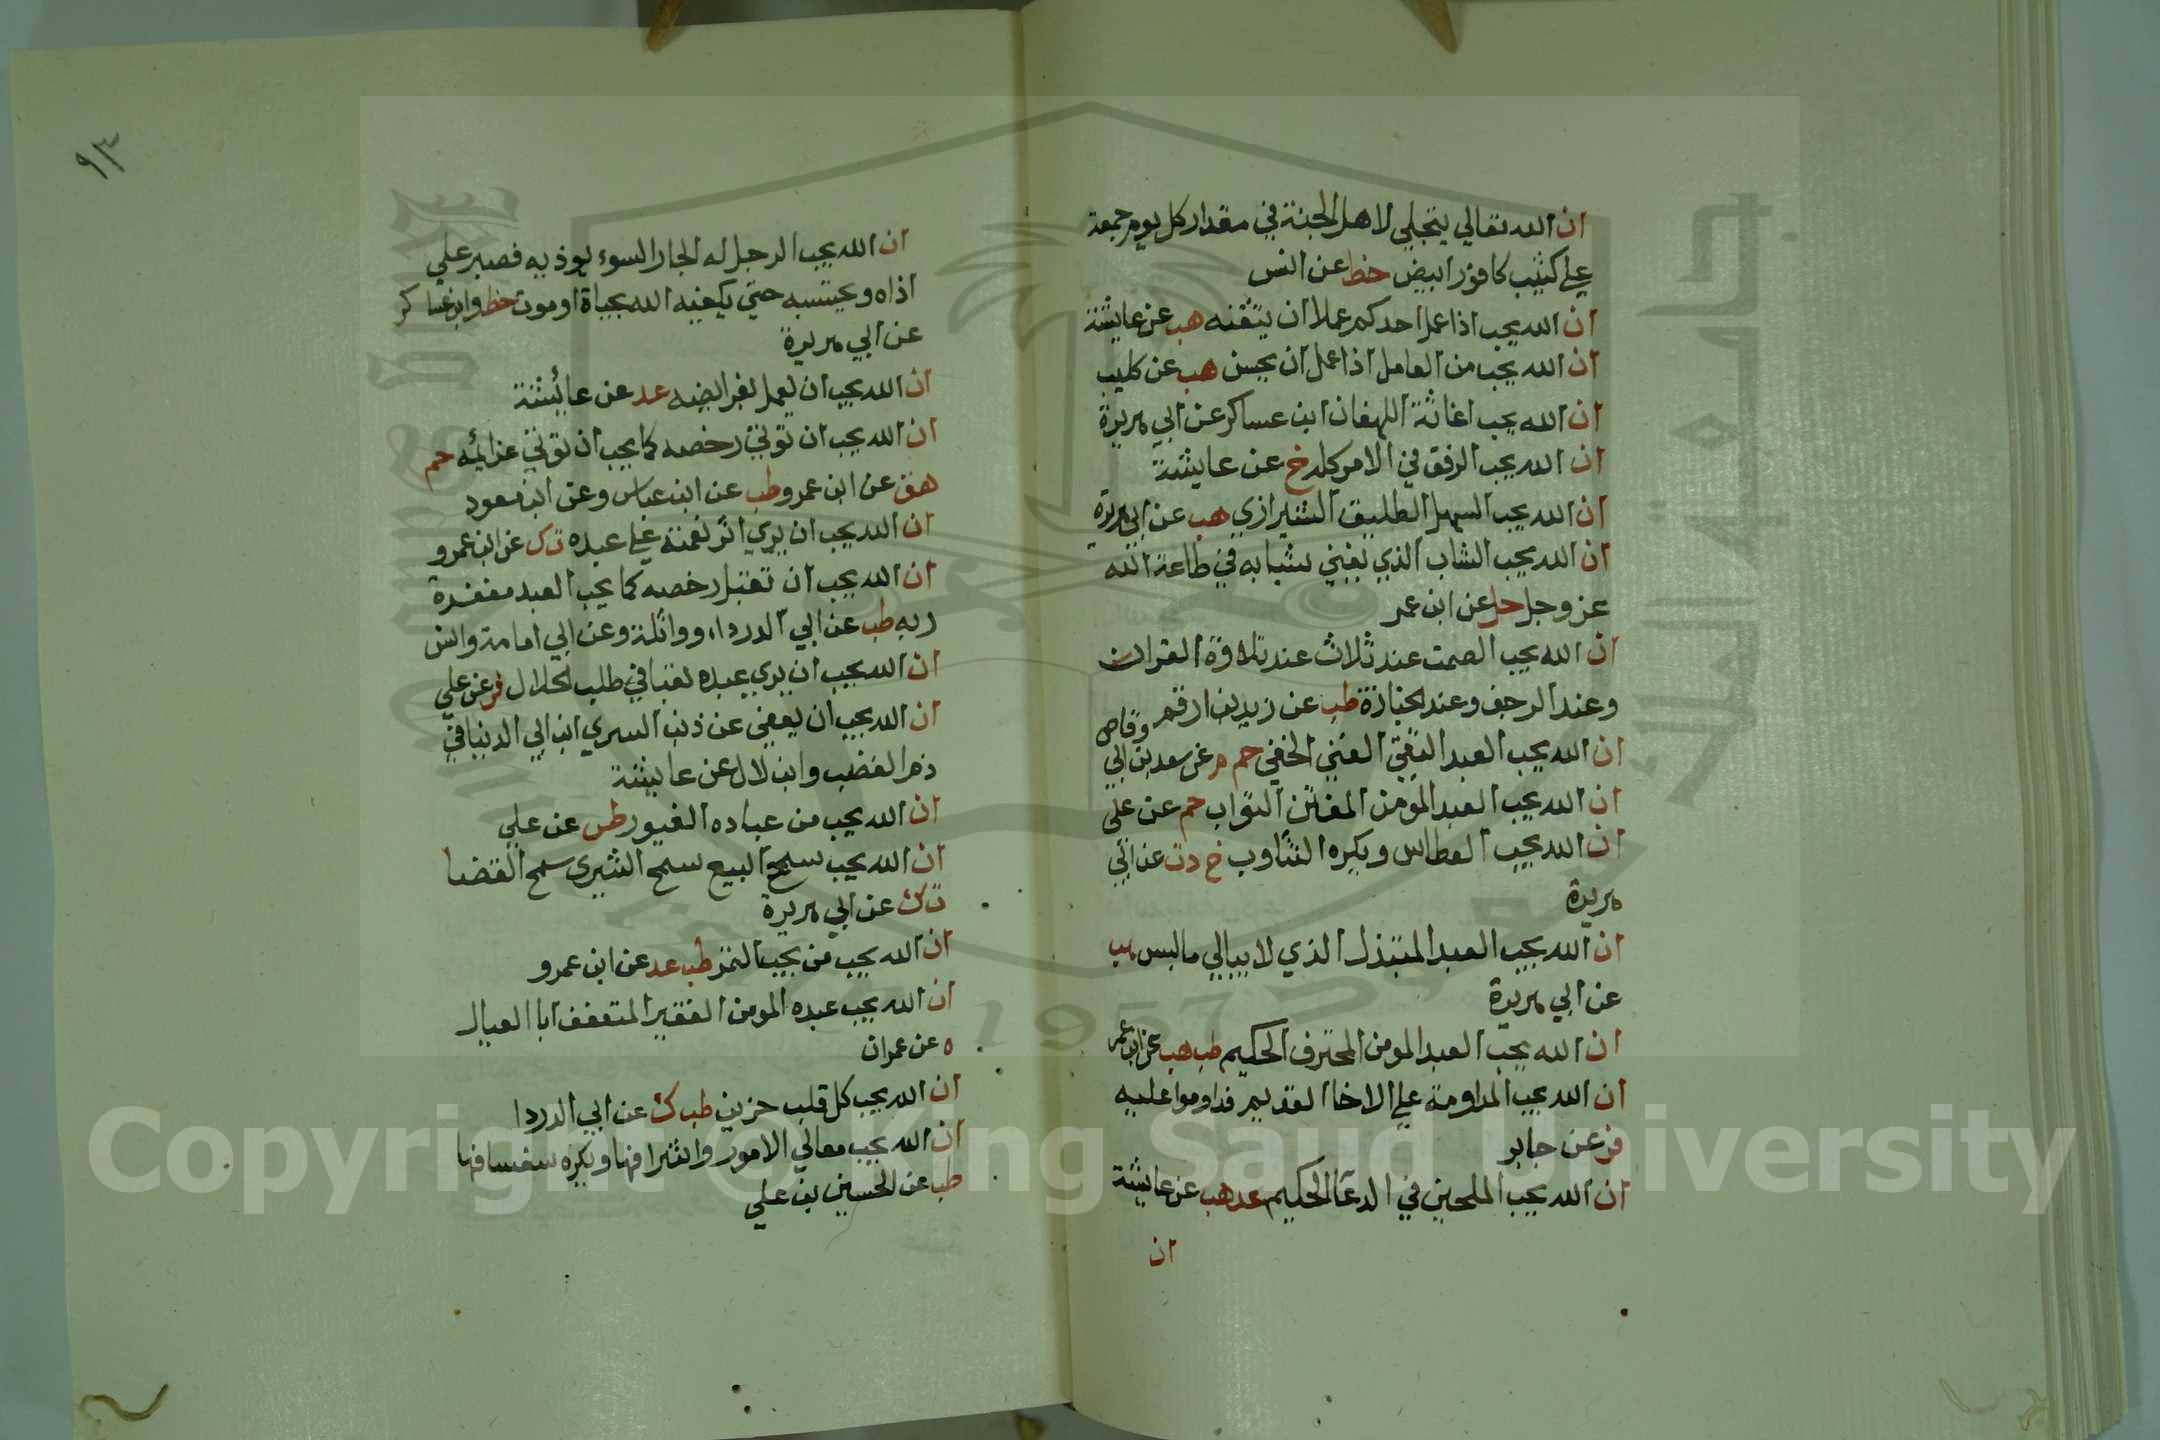 ان الله تعالي يتجلي لاهل الجنة في مقدار كل يوم جمعة
علي كثيب كافور ابيض خط عن انس
ان الله يحب اذا عمل احدكم عملا ان يتقنه هب عن عايشة
ان الله يحب من العامل اذا عمل ان يحسن هب عن كليب
ان الله يحب اغاثة اللهفان ابن عساكر عن ابي هريرة
ان الله يحب الرفق في الامر كله خ عن عايشة
ان الله يحب السهل الطليق الشيرازي هب عن ابي هريرة
ان الله يحب الشاب الذي يفني شبابه في طاعة الله
عز وجل حل عن ابن عمر
ان الله يحب الصمت عند ثلاث عند تلاوة القران
وعند الزحف وعند الجنازة طب عن زيد بن ارقم
ان الله يحب العبد التقي الغني الخفي حم م عن سعد بن ابي وقاص
ان الله يحب العبد المومن المفتن التواب حم عن علي
ان الله يحب العطاس ويكره التثاوب خ دت عن ابي
هريرة
ان الله يحب العبد المتبذل الذي لا يبالي ما لبس هب
عن ابي هريرة
ان الله يحب العبد المومن المحترف الحكيم طب هب عن ابن عمر
ان الله يحب المداومة علي الاخا القديم فداوموا عليه
فر عن جابر
ان الله يحب الملحين في الدعا الحكيم عد هب عن عايشة
ان
٩٣
ان الله يحب الرجل له الجار السوء يوذيه فصبر علي
اذاه ويحتسبه حتي يكفيه الله بحياة او موت خط وابن عساكر
عن ابي هريرة
ان الله يحب ان يعمل بفرايضه عد عن عائشة
ان الله يحب ان توتي رخصه كما يحب ان توتي عزائمه حم
هق عن ابن عمر وطب عن ابن عباس وعن ابن مسعود
ان الله يحب ان يري اثر نعمته علي عبده ت ك عن ابن عمرو
ان الله يحب ان تقبل رخصه كما يحب العبد مغفرة
ربه طب عن ابي الدرداء وواثلة وعن ابي امامة وانس
ان الله يحب ان يري عبده تعبا في طلب الحلال فر عن علي
ان الله يحب ان يعفي عن ذنب السري ابن ابي الدنيا في
ذم الغضب وابن لال عن عايشة
ان الله يحب من عباده الغيور طس عن علي
ان الله يحب سمح البيع سمح الشري سمح القضا
ت ك عن ابي هريرة
ان الله يحب من يحب التمر طب عد عن ابن عمرو
ان الله يحب عبده المومن الفقير المتعفف ابا العيال
ه عن عمران
ان الله يحب كل قلب حزين طب ك عن ابي الدردا
ان الله يحب معالي الامور واشرافها ويكره سفسافها
طب عن الحسين بن علي
Copyright © King Saud University
1957